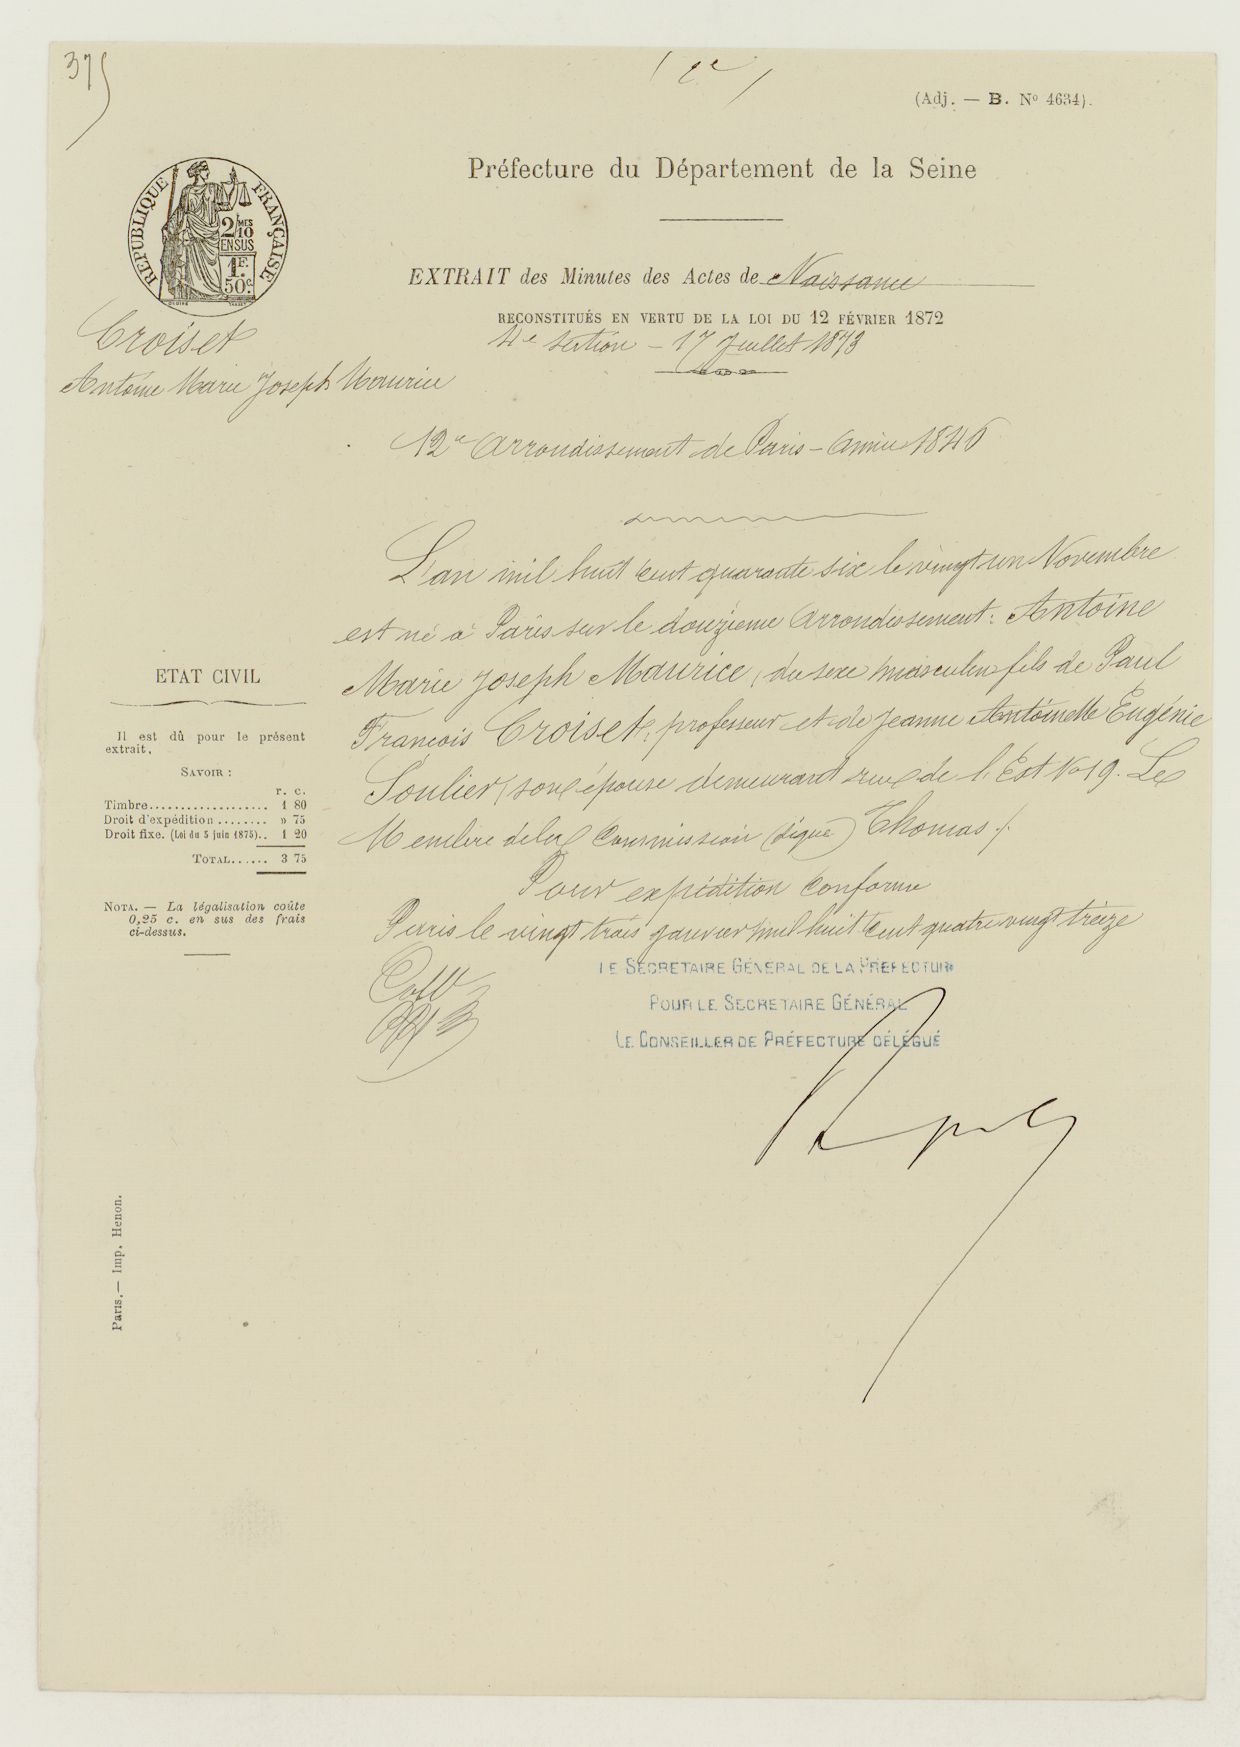 375
(Adj. — B. Nº 4634).
Préfecture du Département de la Seine
RÉPUBLIQUE FRANÇAISE
2/10 MES
EN SUS
1 F.
50 c.
EXTRAIT des Minutes des Actes de Naissance
RECONSTITUÉS EN VERTU DE LA LOI DU 12 FÉVRIER 1872
4e section - 17 Juillet 1873
Croiset
Antoine Marie Joseph Maurice
12e Arrondissement de Paris - Année 1846
L'an mil huit cent quarante six le vingt un Novembre
est né à Paris sur le douzième arrondissement : Antoine
Marie Joseph Maurice, du sexe masculin fils de Paul
François Croiset, professeur et de Jeanne Antoinette Eugénie
Soulier, son épouse demeurant rue de l'Est No 19. Le
Membre de la Commission (signé) Thomas /.
Pour expédition conforme
Paris le vingt trois janvier mil huit cent quatre vingt treize
ETAT CIVIL
Il est dû pour le présent
extrait,
SAVOIR :
F. C.
Timbre................... 1 80
Droit d'expédition ........ » 75
Droit fixe. (Loi du 5 juin 1875).. 1 20
TOTAL...... 3 75
NOTA. — La légalisation coûte
0,25 c. en sus des frais
ci-dessus.
LE SECRETAIRE GÉNÉRAL DE LA PRÉFECTURE
POUR LE SECRETAIRE GÉNÉRAL
LE CONSEILLER DE PRÉFECTURE DÉLÉGUÉ
Coll
Paris.— Imp. Henon.